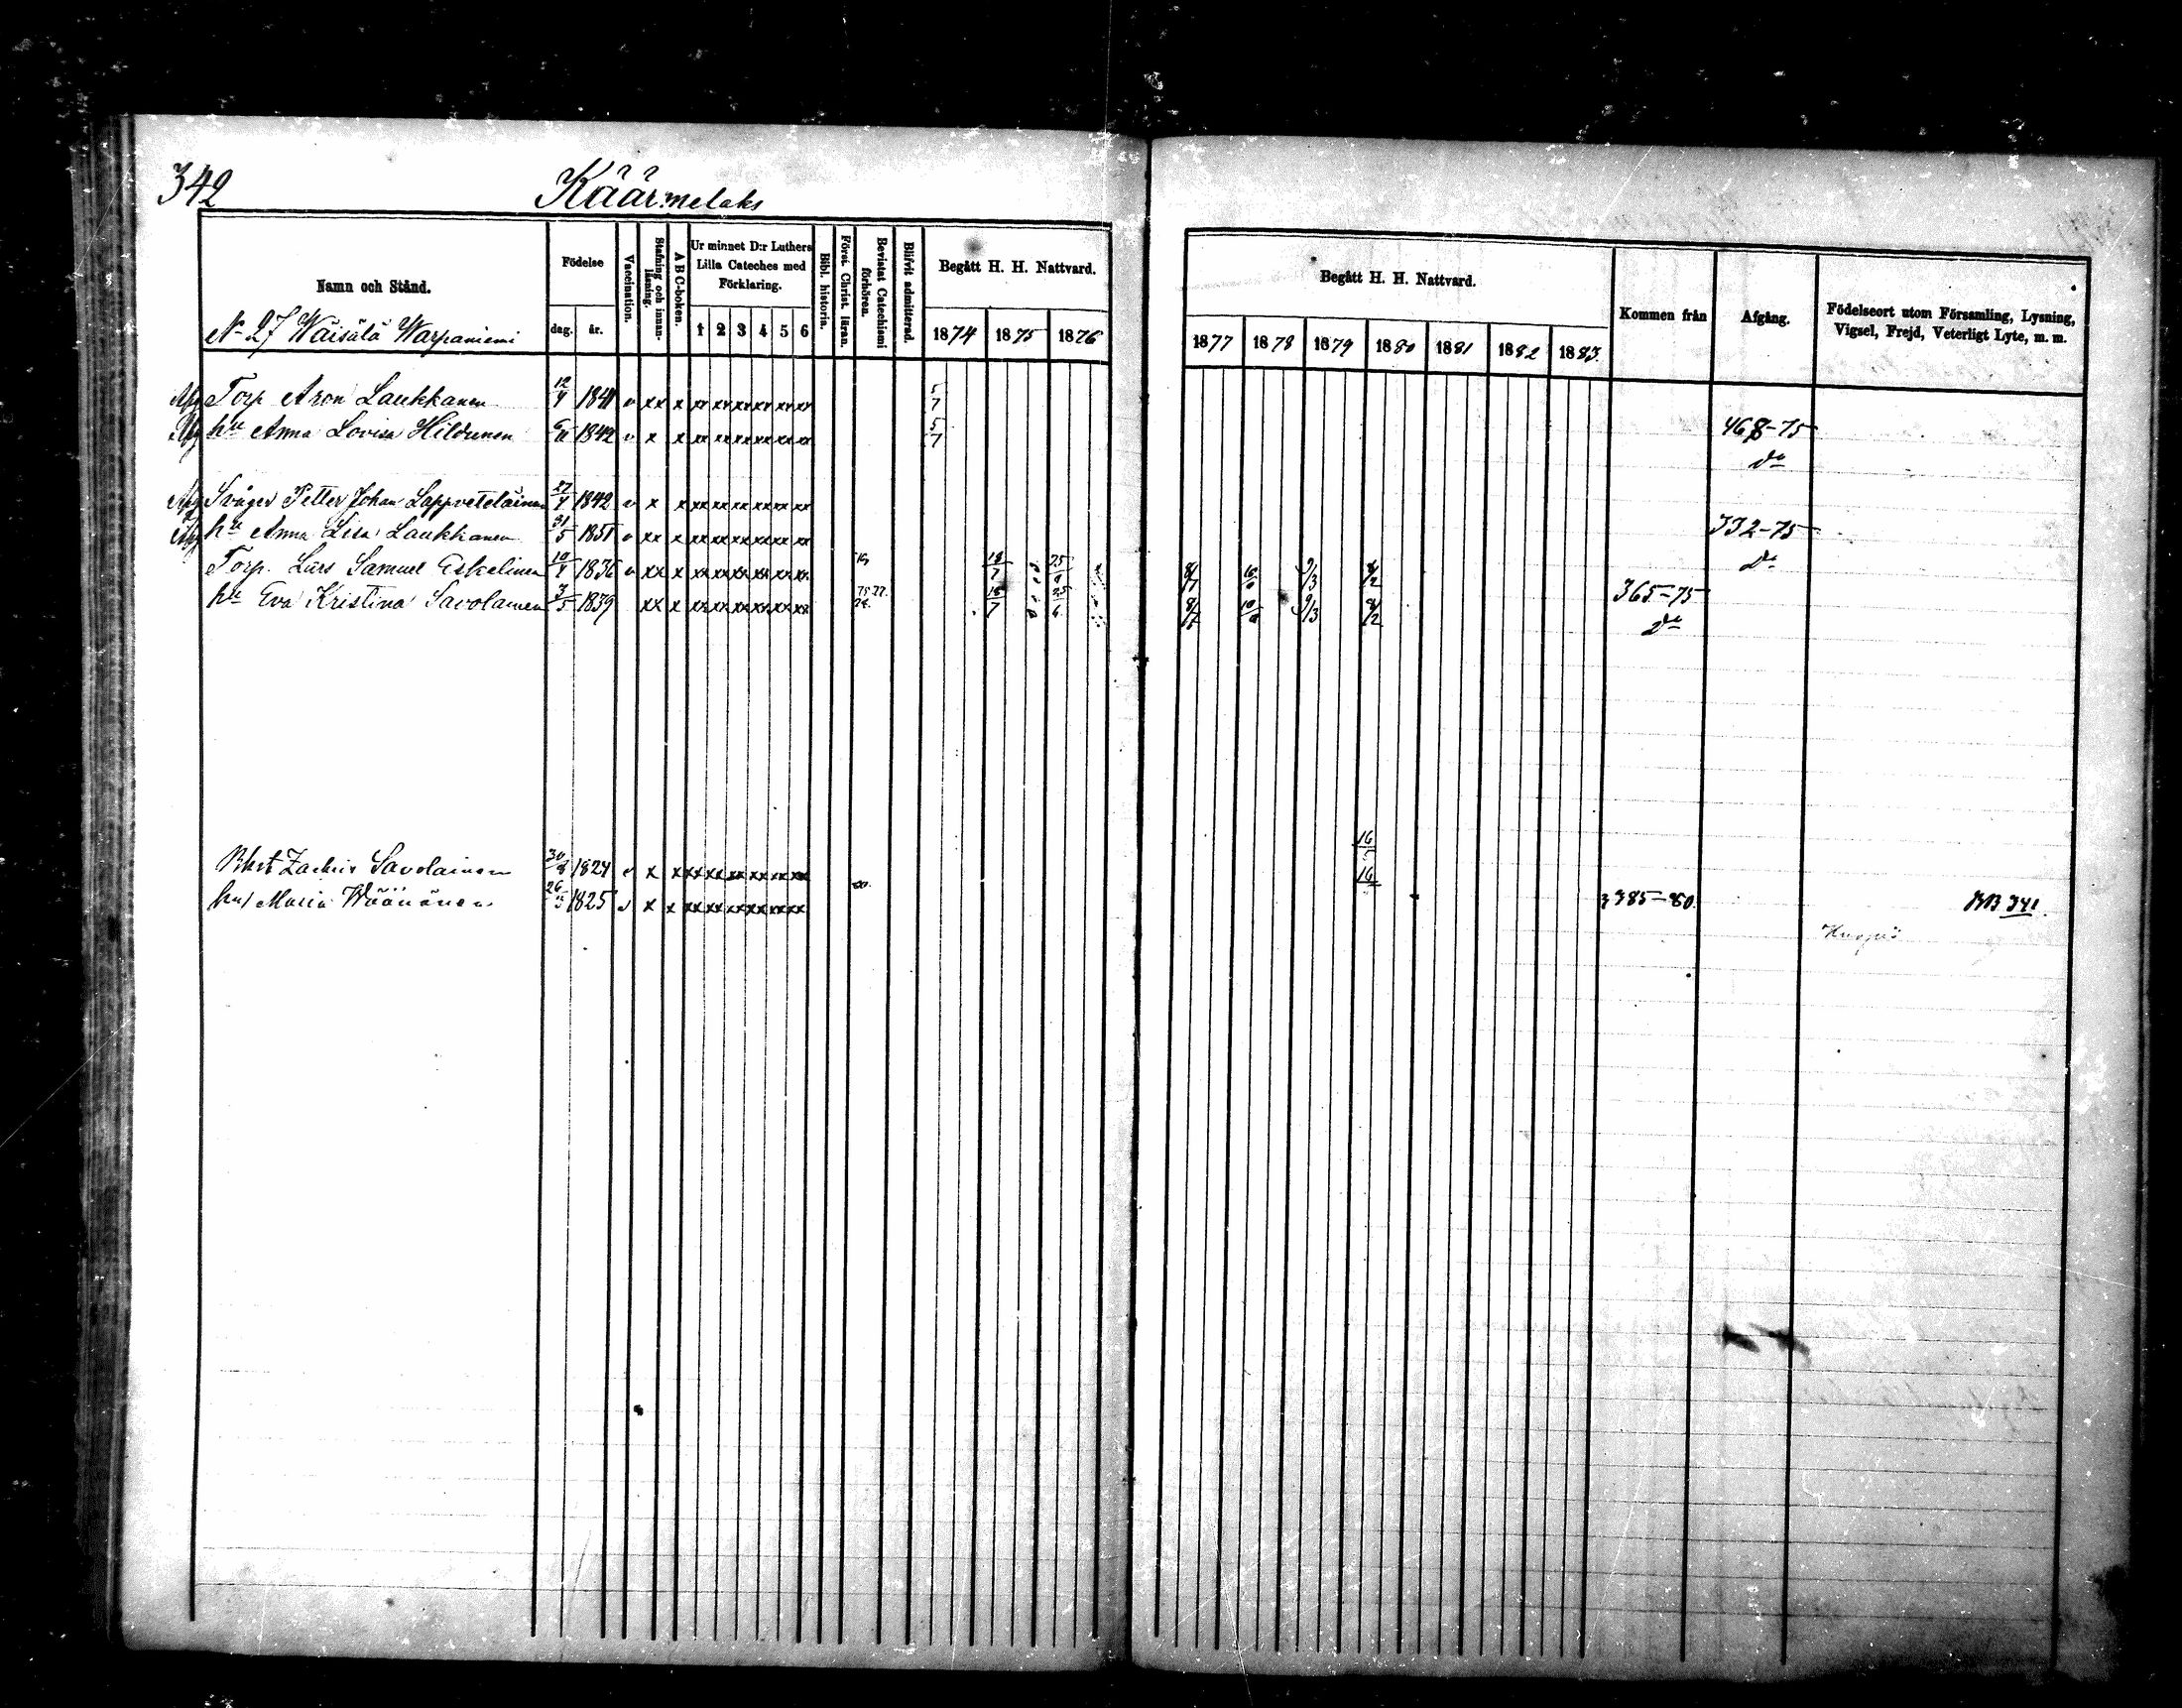 342
Käärmelaks
Namn och Stånd.
Födelse
dag. år.
Vaccination.
Stafning och innanläsning.
A B C-boken.
Ur minnet D:r Luthers Lilla Cateches med Förklaring.
1 2 3 4 5 6
Bibl. historia.
Först. Christ. läran.
Bevistat Catechismi förhören.
Blifvit admitterad.
Begått H. H. Nattvard.
1874 1875 1876
Begått H. H. Nattvard.
1877 1878 1879 1880 1881 1882 1883
Kommen från
Afgång.
Födelseort utom Församling, Lysning, Vigsel, Frejd, Veterligt Lyte, m. m.
No 27 Wäisälä Warpaniemi
Torp Aron Laukkanen 12/4 1841 v xx x xx xx xx xx xx xx 5/7
hu Anna Lovisa Hildunen 1842 v x x xx xx xx xx xx xx 5/7 468-75
do
Svåger Petter Johan Lappveteläinen 27/4 1842 v x x xx xx xx xx xx xx
hu Anna Lisa Laukkanen 31/5 1851 v xx x xx xx xx xx xx xx 332-75
do
Torp. Lars Samuel Eskelinen 1836 v xx x xx xx xx xx xx xx 18/7 9/3 8/2
hu Eva Kristina Savolainen 3/5 1839 xx x xx xx xx xx xx xx 18/7 9/3 8/2 365-75
do
Zachris Savolainen 30/8 1824 v x x xx xx xx xx xx xx 16
hu Maria Väänänen 26 1825 v x x xx xx xx xx xx xx 80. 16 385-80. 341.